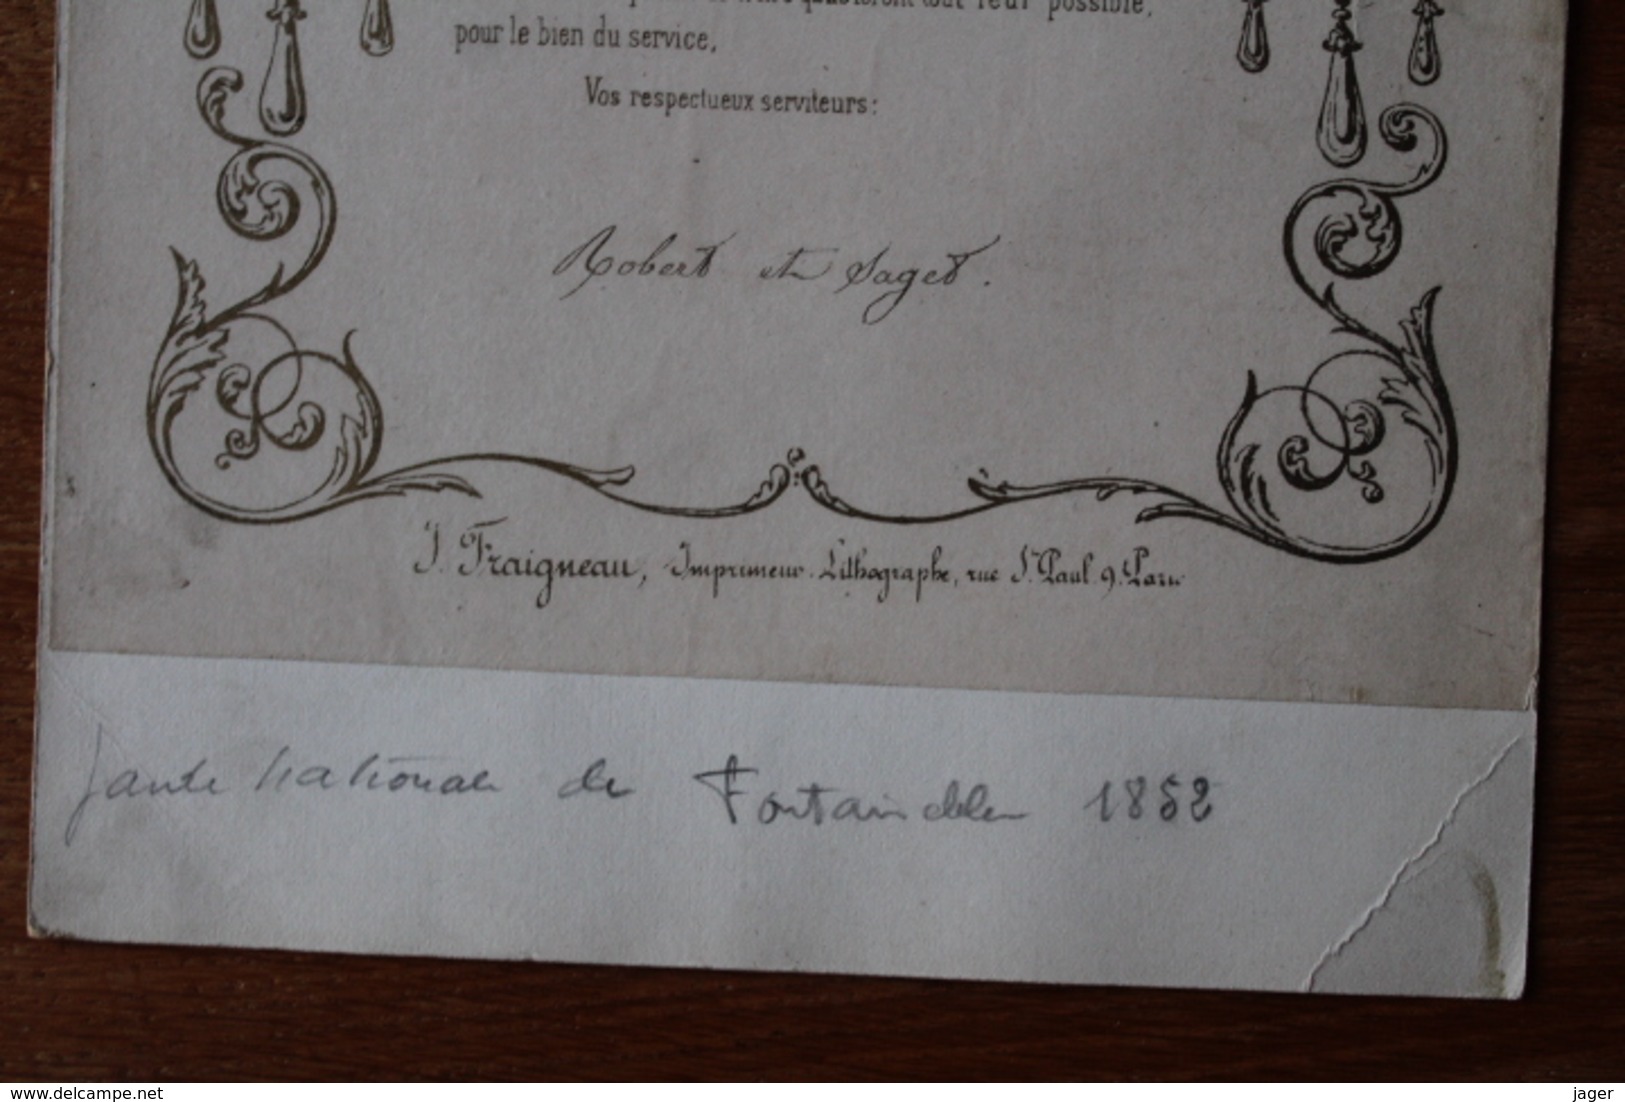 tout leur possible,
pour le bien du service,
Vos respectueux serviteurs:
Robert et Saget.
J. Fraigneau, Imprimeur-Lithographe, rue St. Paul. 9. Paris
Garde Nationale de Fontainebleau 1852
delcampe.net
jager